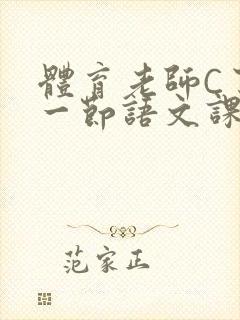 體育老師C
一節語文課
范家正